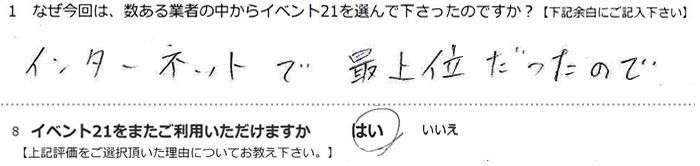 1 なぜ今回は、数ある業者の中からイベント21を選んで下さったのですか？【下記余白にご記入下さい】
インターネットで 最上位だったので
8 イベント21をまたご利用いただけますか はい いいえ
【上記評価をご選択頂いた理由についてお教え下さい。】